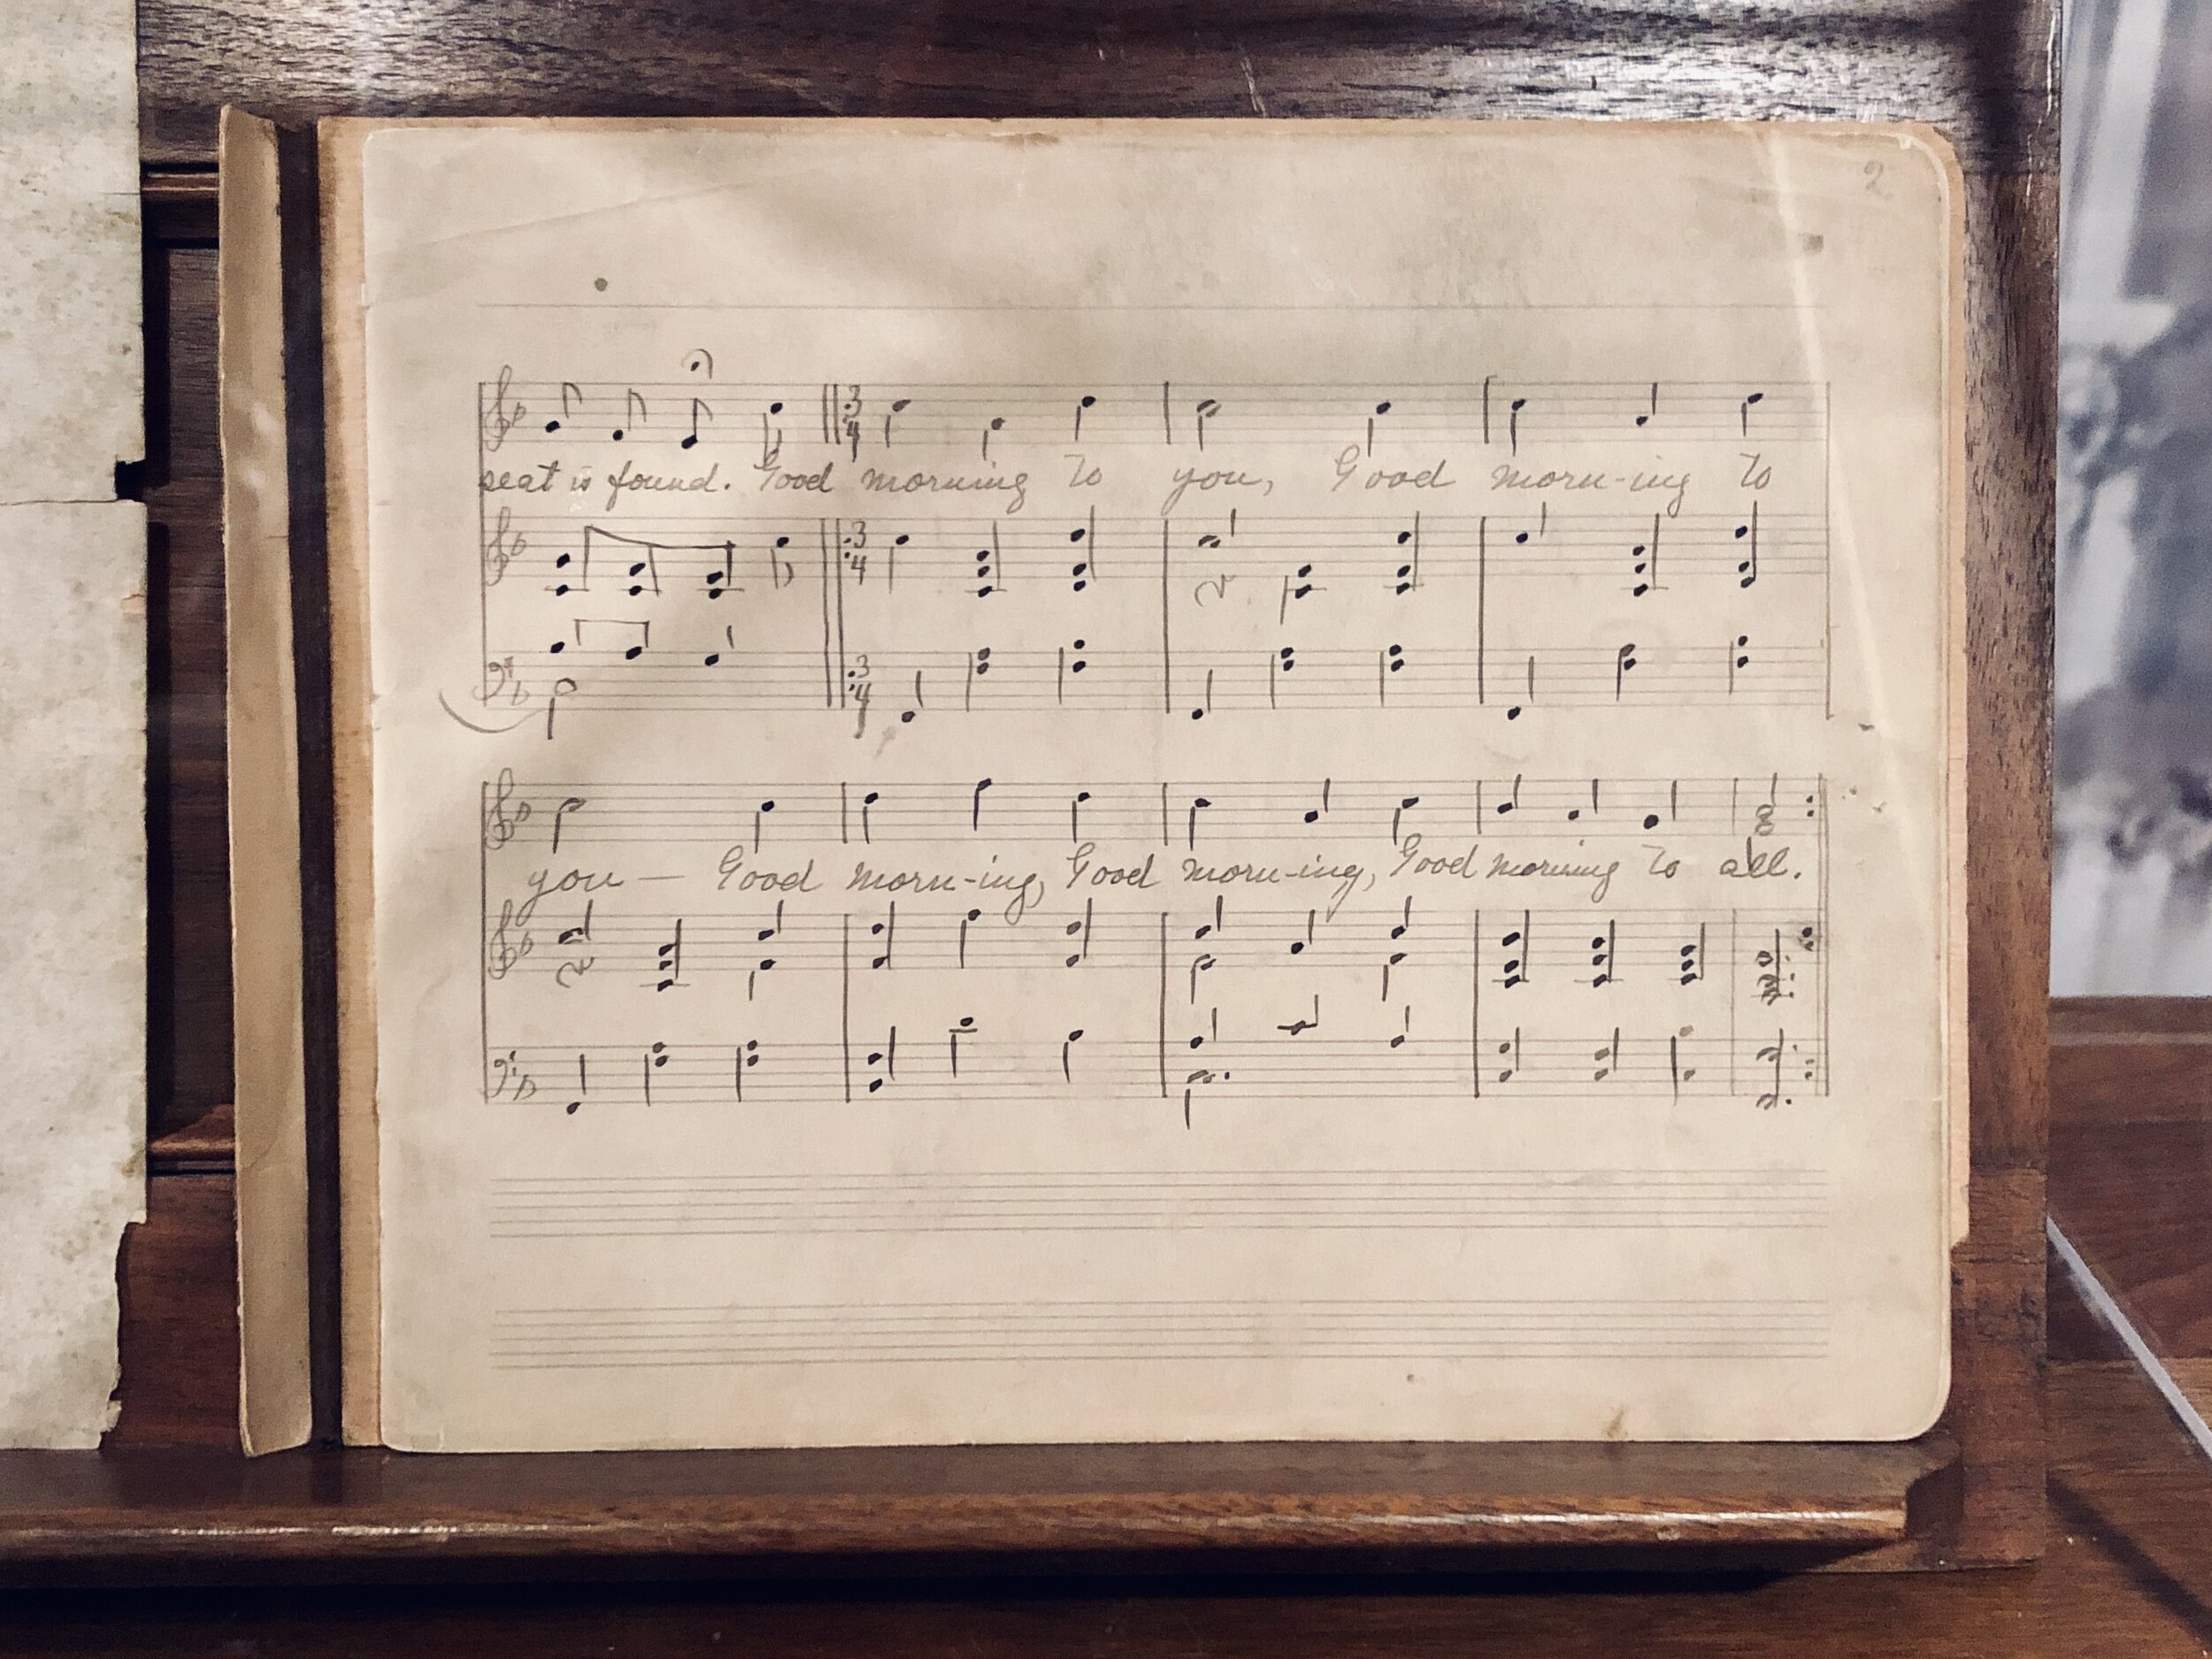 2
3 4
seat is found. Good morning to you, Good morn-ing to
3 4
3 4
you — Good morn-ing, Good morn-ing, Good morning to all.